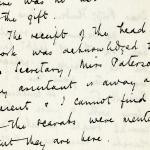 the gift.
The receipt of the head
was acknowledged
Secretary, Miss Paterso
assistant is away a
& I cannot find
the scarabs were ment
they are here.